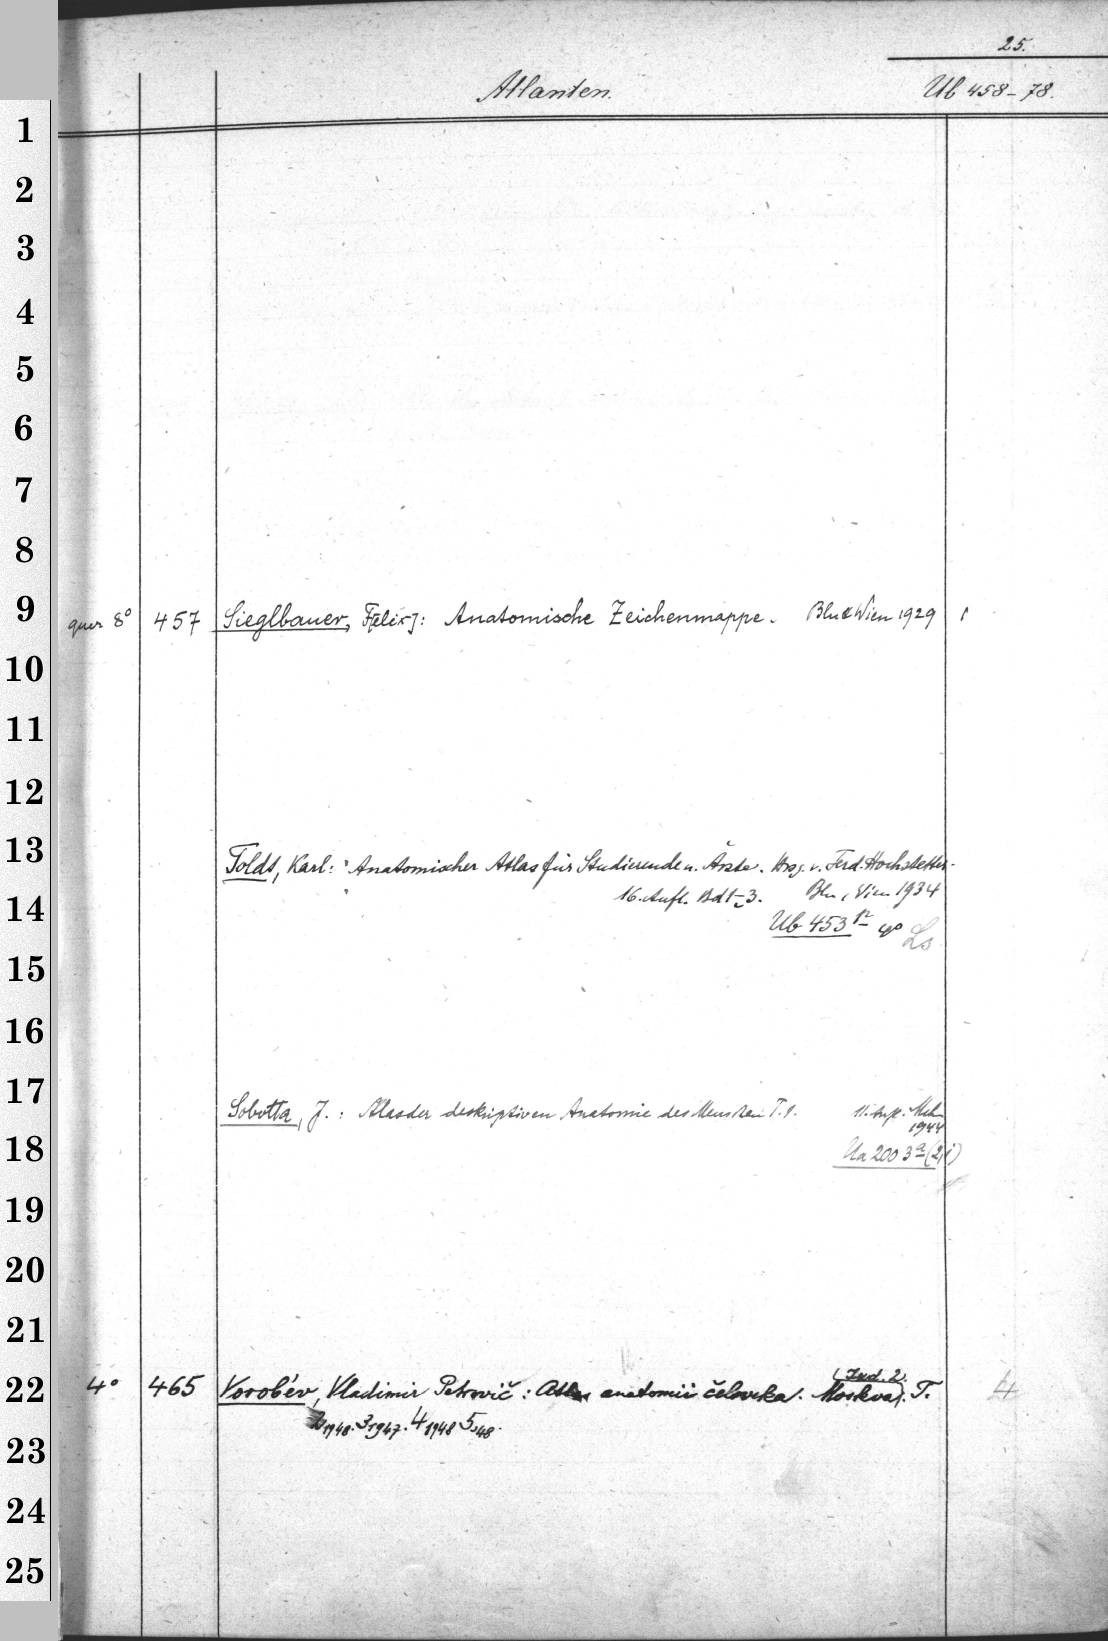 25.
Atlanten. Ub 458-78.
1
2
3
4
5
6
7
8
9 quer 8° 457 Sieglbauer, F[elix]: Anatomische Zeichenmappe. Bln & Wien 1929 1
10
11
12
13 Toldt, Karl: Anatomischer Atlas für Studierende u. Ärzte. Hrsg. v. Ferd. Hochstetter.
14 16. Aufl. Bd 1-3. Bln, Wien 1934
Ub 453 4° Ls
15
16
17 Sobotta, J.: Atlas der deskriptiven Anatomie des Menschen T. 1. 11. Aufl. Mchn
1944
18 Ua 200 3a (2,1)
19
20
21
22 4° 465 Vorob'ev, Vladimir Petrovič: Atlas anatomii čeloveka. (Izd. 2.) Moskva. T. 4
23 1948. 3 1947. 4 1948 5,48.
24
25